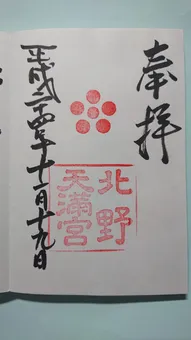 奉拝
北野
天満宮
平成二十四年十二月十九日